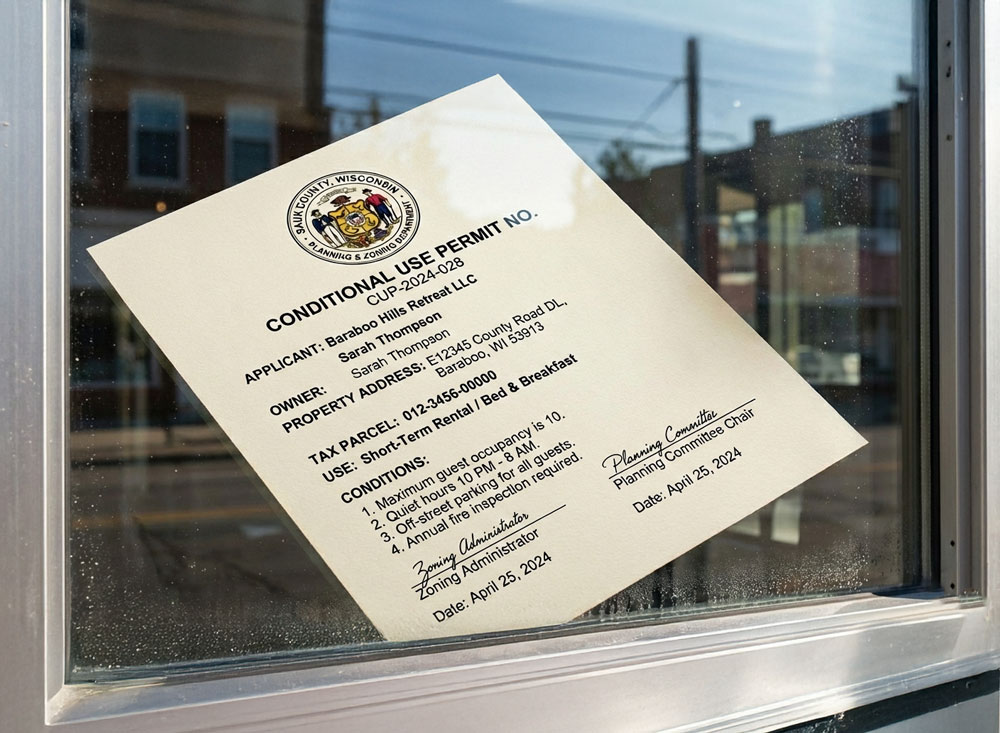 SAUK COUNTY, WISCONSIN
PLANNING & ZONING DEPARTMENT
CONDITIONAL USE PERMIT NO.
CUP-2024-028
APPLICANT: Baraboo Hills Retreat LLC
Sarah Thompson
OWNER: Sarah Thompson
PROPERTY ADDRESS: E12345 County Road DL,
Baraboo, WI 53913
TAX PARCEL: 012-3456-00000
USE: Short-Term Rental / Bed & Breakfast
CONDITIONS:
1. Maximum guest occupancy is 10.
2. Quiet hours 10 PM - 8 AM.
3. Off-street parking for all guests.
4. Annual fire inspection required.
Zoning Administrator
Zoning Administrator
Date: April 25, 2024
Planning Committee
Planning Committee Chair
Date: April 25, 2024